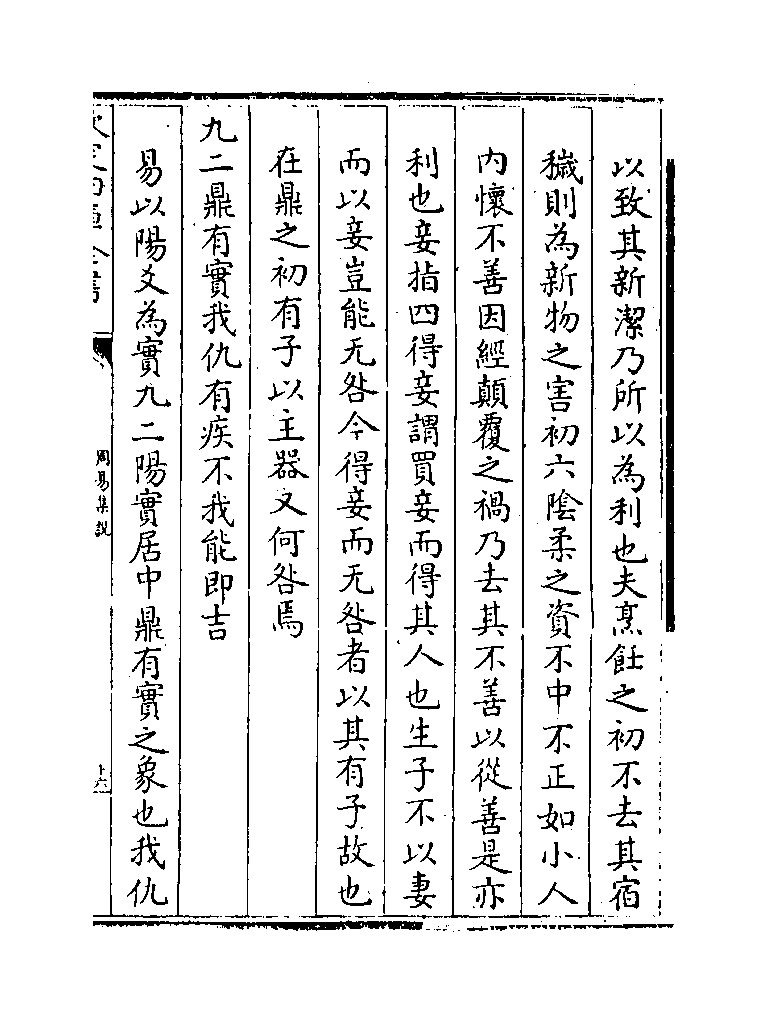 以致其新潔乃所以為利也夫烹飪之初不去其宿
穢則為新物之害初六陰柔之資不中不正如小人
内懷不善因經顛覆之禍乃去其不善以從善是亦
利也妾指四得妾謂買妾而得其人也生子不以妻
而以妾豈能无咎今得妾而无咎者以其有子故也
在鼎之初有子以主器又何咎焉
九二鼎有實我仇有疾不我能即吉
易以陽爻為實九二陽實居中鼎有實之象也我仇
欽定四庫全書
周易集說
十六